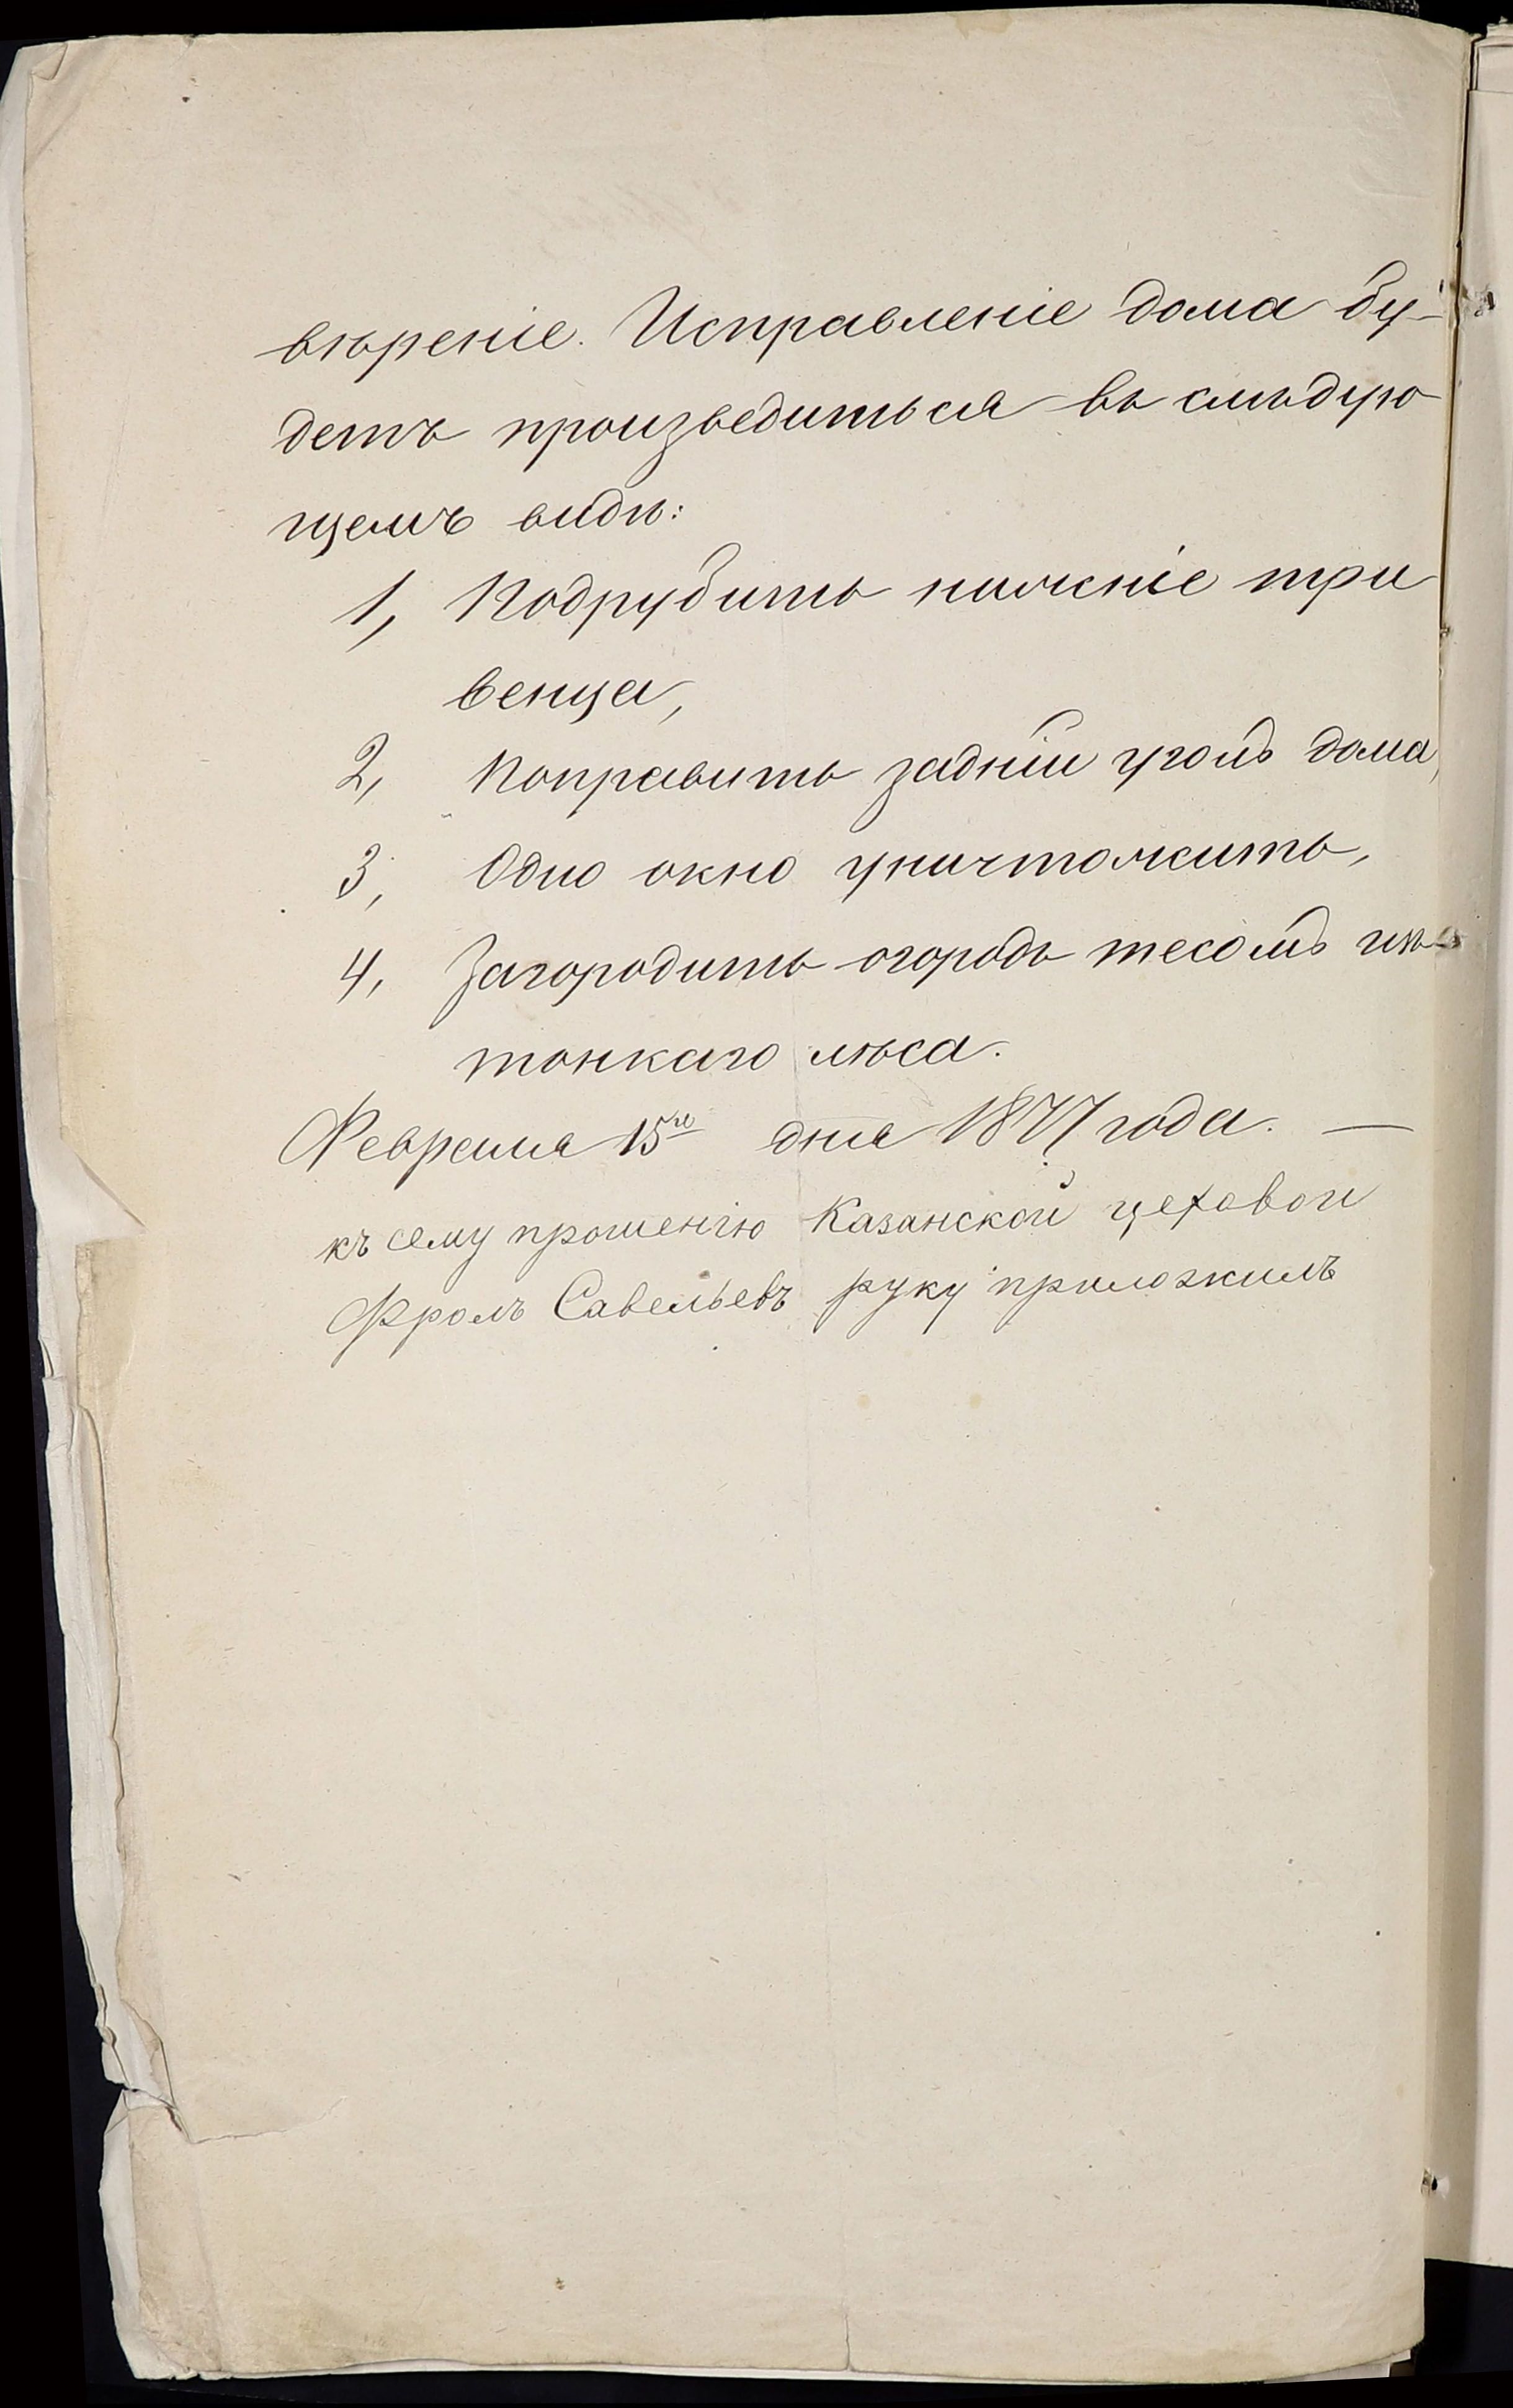 вѣреніе. Исправленіе дома бу-
детъ произведиться въ слѣдую
щемъ видѣ:
1, Подрубить нижніе три
венца,
2, Поправить задній уголъ дома,
3, Одно окно уничтожить,
4, Загородить огородъ тесомъ
тонкаго лѣса.
Февраля 15го дня 1877 года. —
къ сему прошенію Казанской цеховой
Фролъ Савельевъ руку приложилъ